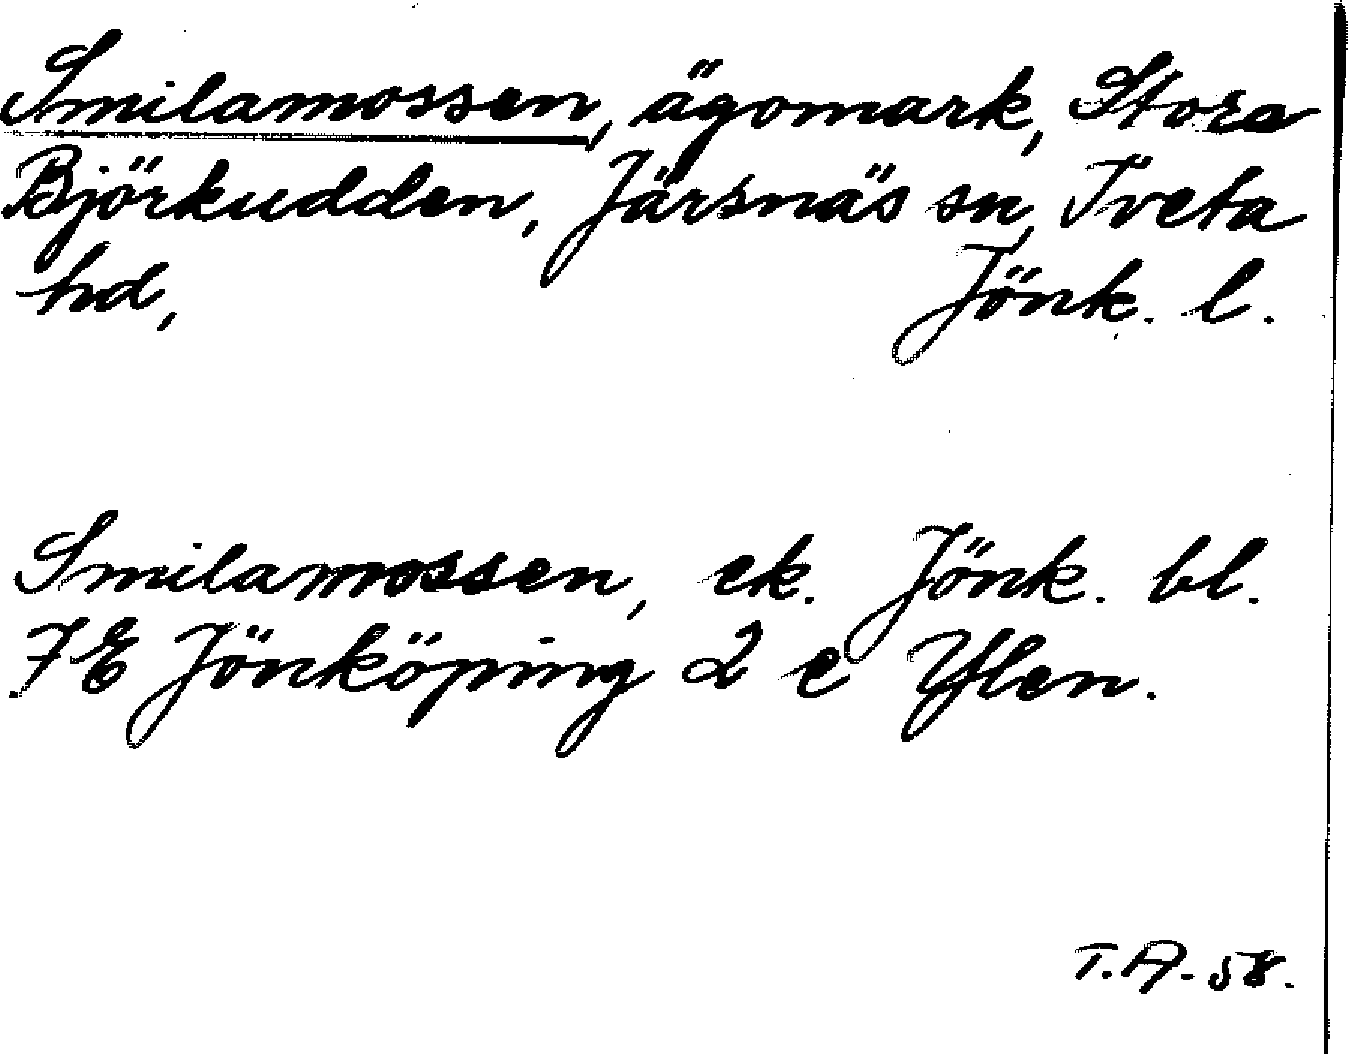 Smilamossen, ägomark, Stora
Björkudden, Järsnäs sn, Tveta
hd, Jönk. l.
Smilamossen, ek. Jönk. bl.
7E Jönköping 2 e Ylen.
T.A. 58.